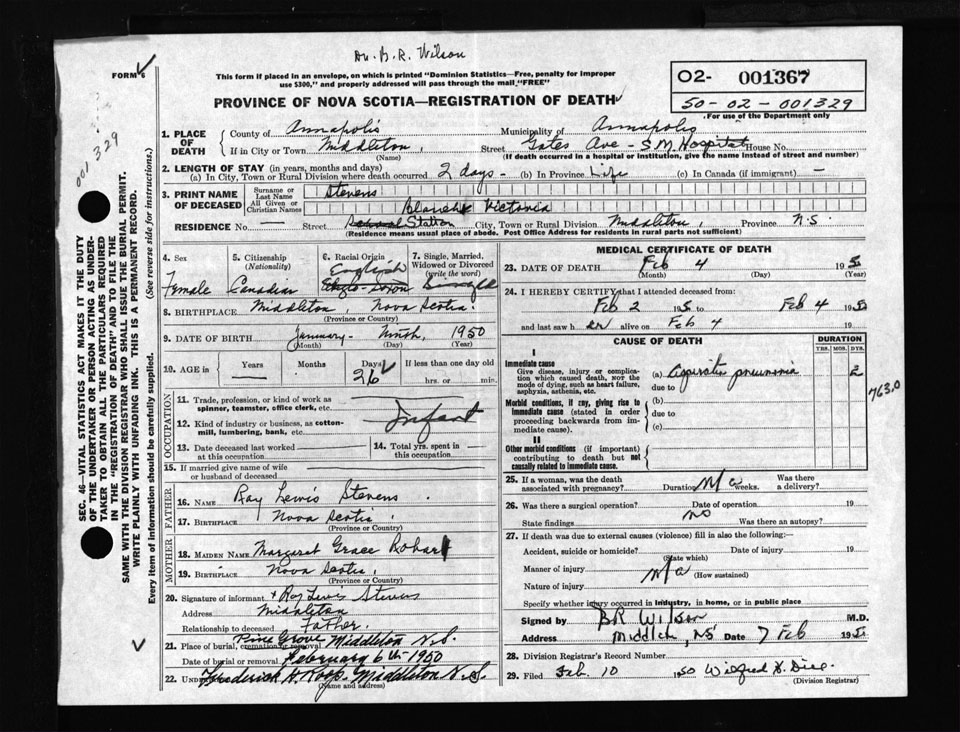 Dr. B. R. Wilson
FORM 6
This form if placed in an envelope, on which is printed "Dominion Statistics—Free, penalty for improper
use $300," and properly addressed will pass through the mail "FREE"
PROVINCE OF NOVA SCOTIA—REGISTRATION OF DEATH
02- 001367
50-02-001329
For use of the Department only
001329
SEC. 46—VITAL STATISTICS ACT MAKES IT THE DUTY
OF THE UNDERTAKER OR PERSON ACTING AS UNDER-
TAKER TO OBTAIN ALL THE PARTICULARS REQUIRED
IN THE "REGISTRATION OF DEATH" AND TO FILE THE
SAME WITH THE DIVISION REGISTRAR WHO SHALL ISSUE THE BURIAL PERMIT.
WRITE PLAINLY WITH UNFADING INK. THIS IS A PERMANENT RECORD.
Every item of information should be carefully supplied. (See reverse side for instructions.)
1. PLACE OF DEATH
County of Annapolis Municipality of Annapolis
If in City or Town Middleton, Street Gates Ave - S M Hospital House No.
(Name) (If death occurred in a hospital or institution, give the name instead of street and number)
2. LENGTH OF STAY (in years, months and days)
(a) In City, Town or Rural Division where death occurred 2 days - (b) In Province Life (c) In Canada (if immigrant) —
3. PRINT NAME OF DECEASED
Surname or Last Name Stevens
All Given or Christian Names Blanche Victoria
RESIDENCE No. — Street Station City, Town or Rural Division Middleton, Province N.S.
(Residence means usual place of abode. Post Office Address for residents in rural parts not sufficient)
4. Sex Female
5. Citizenship (Nationality) Canadian
6. Racial Origin English
7. Single, Married, Widowed or Divorced (write the word) Single
8. BIRTHPLACE Middleton, Nova Scotia.
(Province or Country)
9. DATE OF BIRTH January - Ninth, 1950
(Month) (Day) (Year)
10. AGE in Years Months Days 26 If less than one day old
hrs. or min.
OCCUPATION
11. Trade, profession, or kind of work as
spinner, teamster, office clerk, etc.
12. Kind of industry or business, as cotton-
mill, lumbering, bank, etc. Infant
13. Date deceased last worked
at this occupation
14. Total yrs. spent in
this occupation
15. If married give name of wife
or husband of deceased
FATHER
16. NAME Ray Lewis Stevens.
17. BIRTHPLACE Nova Scotia
(Province or Country)
MOTHER
18. MAIDEN NAME Margaret Grace Robar
19. BIRTHPLACE Nova Scotia.
(Province or Country)
20. Signature of informant x Roy Lewis Stevens
Address Middleton
Relationship to deceased Father.
21. Place of burial, cremation or removal Pine Grove Middleton N.S.
Date of burial or removal February 6th 1950
22. UNDERTAKER Frederick H. Roop. Middleton N.S.
(Name and address)
MEDICAL CERTIFICATE OF DEATH
23. DATE OF DEATH Feb 4 1950
(Month) (Day) (Year)
24. I HEREBY CERTIFY that I attended deceased from:
Feb 2 1950 to Feb 4 1950
and last saw h er alive on Feb 4 19
CAUSE OF DEATH
DURATION
YRS. MOS. DYS.
I
Immediate cause
Give disease, injury or complica-
tion which caused death, NOT the
mode of dying, such as heart failure,
asphyxia, asthenia, etc.
(a) Aspiration pneumonia 2
due to
7630
Morbid conditions, if any, giving rise to
immediate cause (stated in order
proceeding backwards from im-
mediate cause).
(b)
due to
(c)
II
Other morbid conditions (if important)
contributing to death but not
causally related to immediate cause.
25. If a woman, was the death
associated with pregnancy? Duration N/a weeks. Was there
a delivery?
26. Was there a surgical operation? No Date of operation 19
State findings Was there an autopsy?
27. If death was due to external causes (violence) fill in also the following:
Accident, suicide or homicide? Date of injury 19
(State which)
Manner of injury N/a (How sustained)
Nature of injury
Specify whether injury occurred in industry, in home, or in public place
Signed by BR Wilson M.D.
Address Middleton, NS Date 7 Feb 1950
28. Division Registrar's Record Number
29. Filed Feb. 10 1950 Wilfred
(Division Registrar)